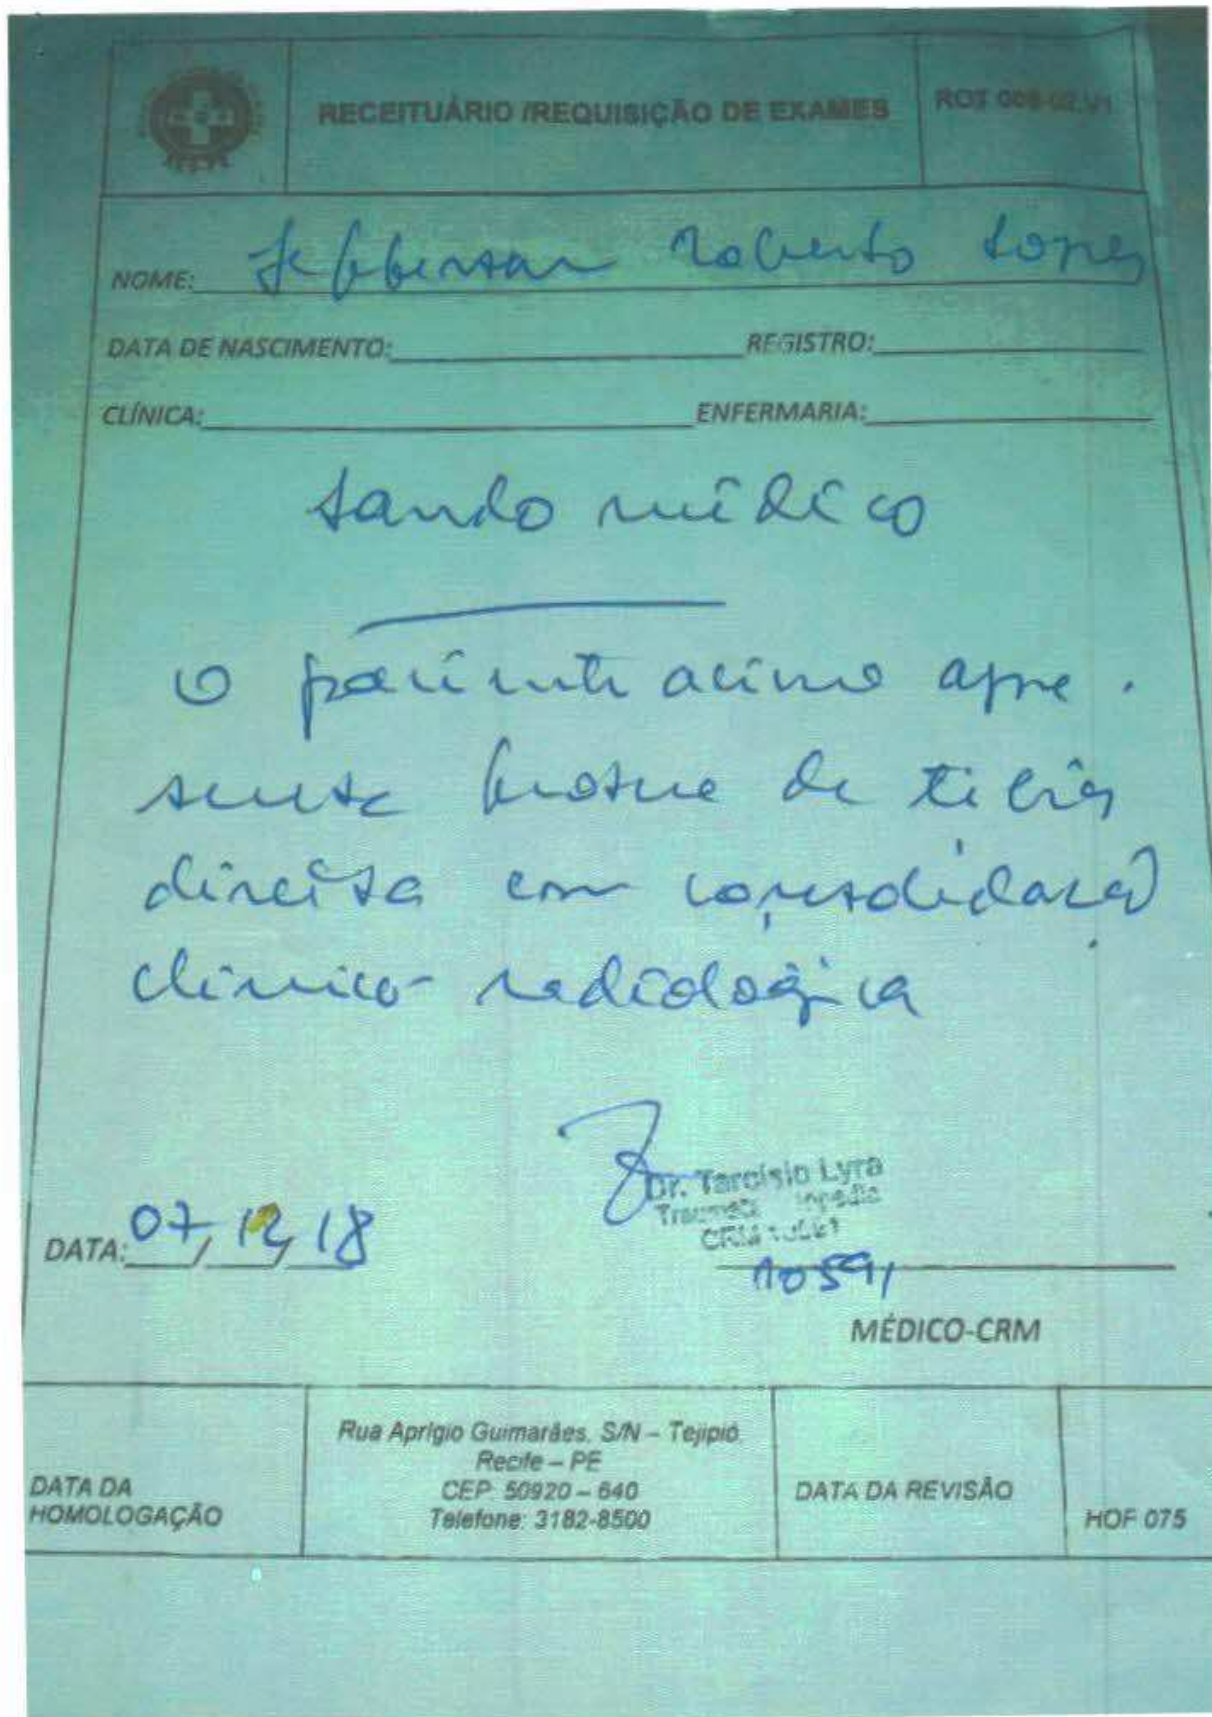 RECEITUÁRIO /REQUISIÇÃO DE EXAMES
NOME: Jefferson Roberto Lopes
DATA DE NASCIMENTO: REGISTRO:
CLÍNICA: ENFERMARIA:
Laudo médico
O paciente acima apre-
senta fratura de tíbia
direita com consolidação
clínico-radiológica
Dr. Tarcísio Lyra
CRM
DATA: 07/12/18
10591
MÉDICO-CRM
Rua Aprígio Guimarães, S/N – Tejipió
Recife – PE
CEP 50920 – 640
Telefone: 3182-8500
DATA DA
HOMOLOGAÇÃO
DATA DA REVISÃO
HOF 075